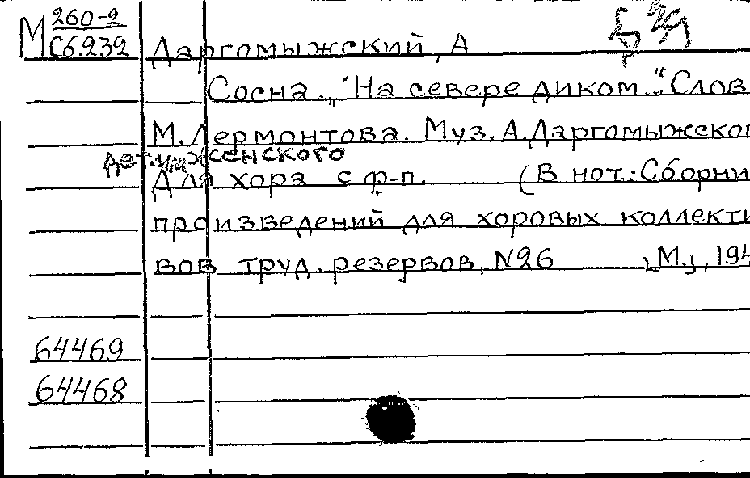 М 260-2
Сб.232
Даргомыжский, А
Сосна. „На севере диком..." Слов
М. Лермонтова. Муз. А. Даргомыжско
женского
Для хора с ф-п. (В нот.: Сборни
произведений для хоровых коллекти
вов труд. резервов, N26 М., 194
64469
64468